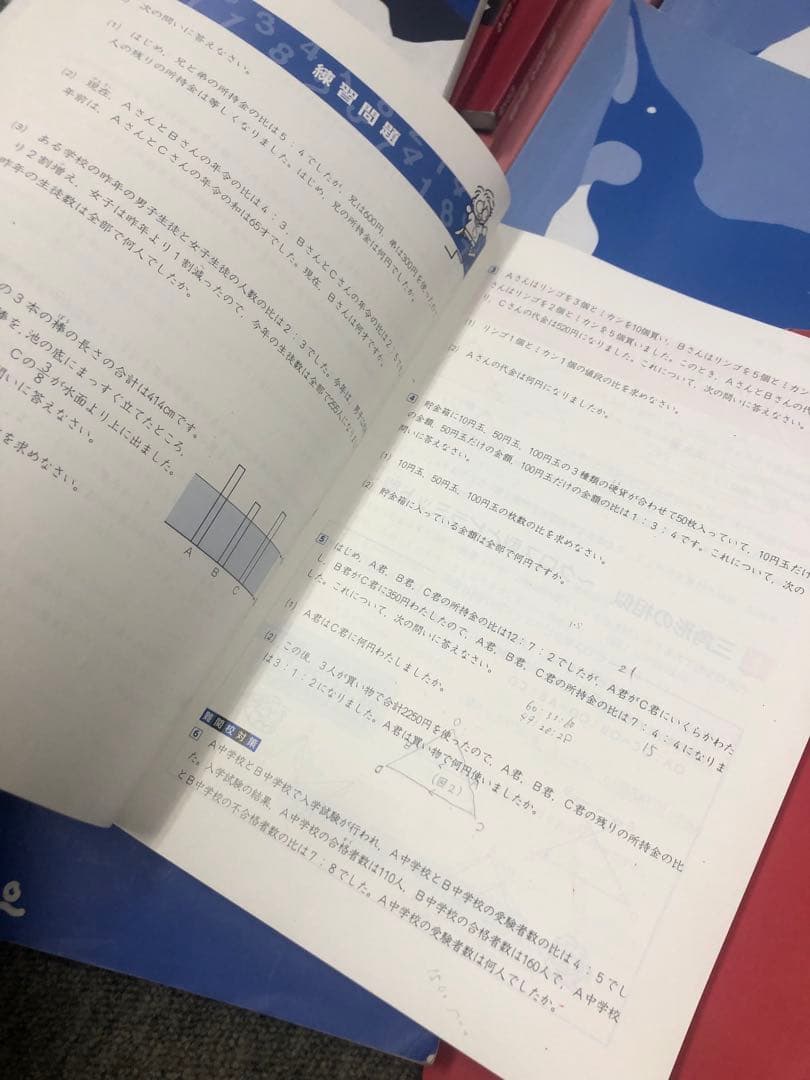 練習問題
次の問いに答えなさい。
(1) はじめ，兄と弟の所持金の比は5：4でしたが，兄は600円，弟は300円を使った
人の残りの所持金は等しくなりました。はじめ，兄の所持金は何円でしたか。
(2) 現在，AさんとBさんの年令の比は4：3，BさんとCさんの年令の比は2：5で
年前は，AさんとCさんの年令の和は65才でした。現在，Bさんは何才ですか。
(3) ある学校の昨年の男子生徒と女子生徒の人数の比は2：3でした。今年は，男子
り2割増え，女子は昨年より1割減ったので，今年の生徒数は全部で255人になりま
昨年の生徒数は全部で何人でしたか。
の3本の棒の長さの合計は414cmです。
棒を，池の底にまっすぐ立てたところ，
Cの3/8が水面より上に出ました。
問いに答えなさい。
を求めなさい。
A B C
3 Aさんはリンゴを3個とミカンを10個買い，Bさんはリンゴを5個とミカン
さんはリンゴを2個とミカンを5個買いました。このとき，AさんとBさんの代
り，Cさんの代金は520円になりました。これについて，次の問いに答えなさい。
(1) リンゴ1個とミカン1個の値段の比を求めなさい。
(2) Aさんの代金は何円になりましたか。
4 貯金箱に10円玉，50円玉，100円玉の3種類の硬貨が合わせて50枚入っていて，10円玉だけ
の金額，50円玉だけの金額，100円玉だけの金額の比は1：3：4です。これについて，次の
問いに答えなさい。
(1) 10円玉，50円玉，100円玉の枚数の比を求めなさい。
(2) 貯金箱に入っている金額は全部で何円ですか。
5 はじめ，A君，B君，C君の所持金の比は12：7：2でしたが，A君がC君にいくらかわた
し，B君がC君に350円わたしたので，A君，B君，C君の所持金の比は7：4：4になりま
した。これについて，次の問いに答えなさい。
(1) A君はC君に何円わたしましたか。
(2) この後，3人が買い物で合計2250円を使ったので，A君，B君，C君の残りの所持金の比
は3：1：2になりました。A君は買い物で何円使いましたか。
21
15
(図2)
難関校対策
6 A中学校とB中学校で入学試験が行われ，A中学校とB中学校の受験者数の比は4：5でし
た。入学試験の結果，A中学校の合格者数は110人，B中学校の合格者数は160人で，A中学校
とB中学校の不合格者数の比は7：8でした。A中学校の受験者数は何人でしたか。